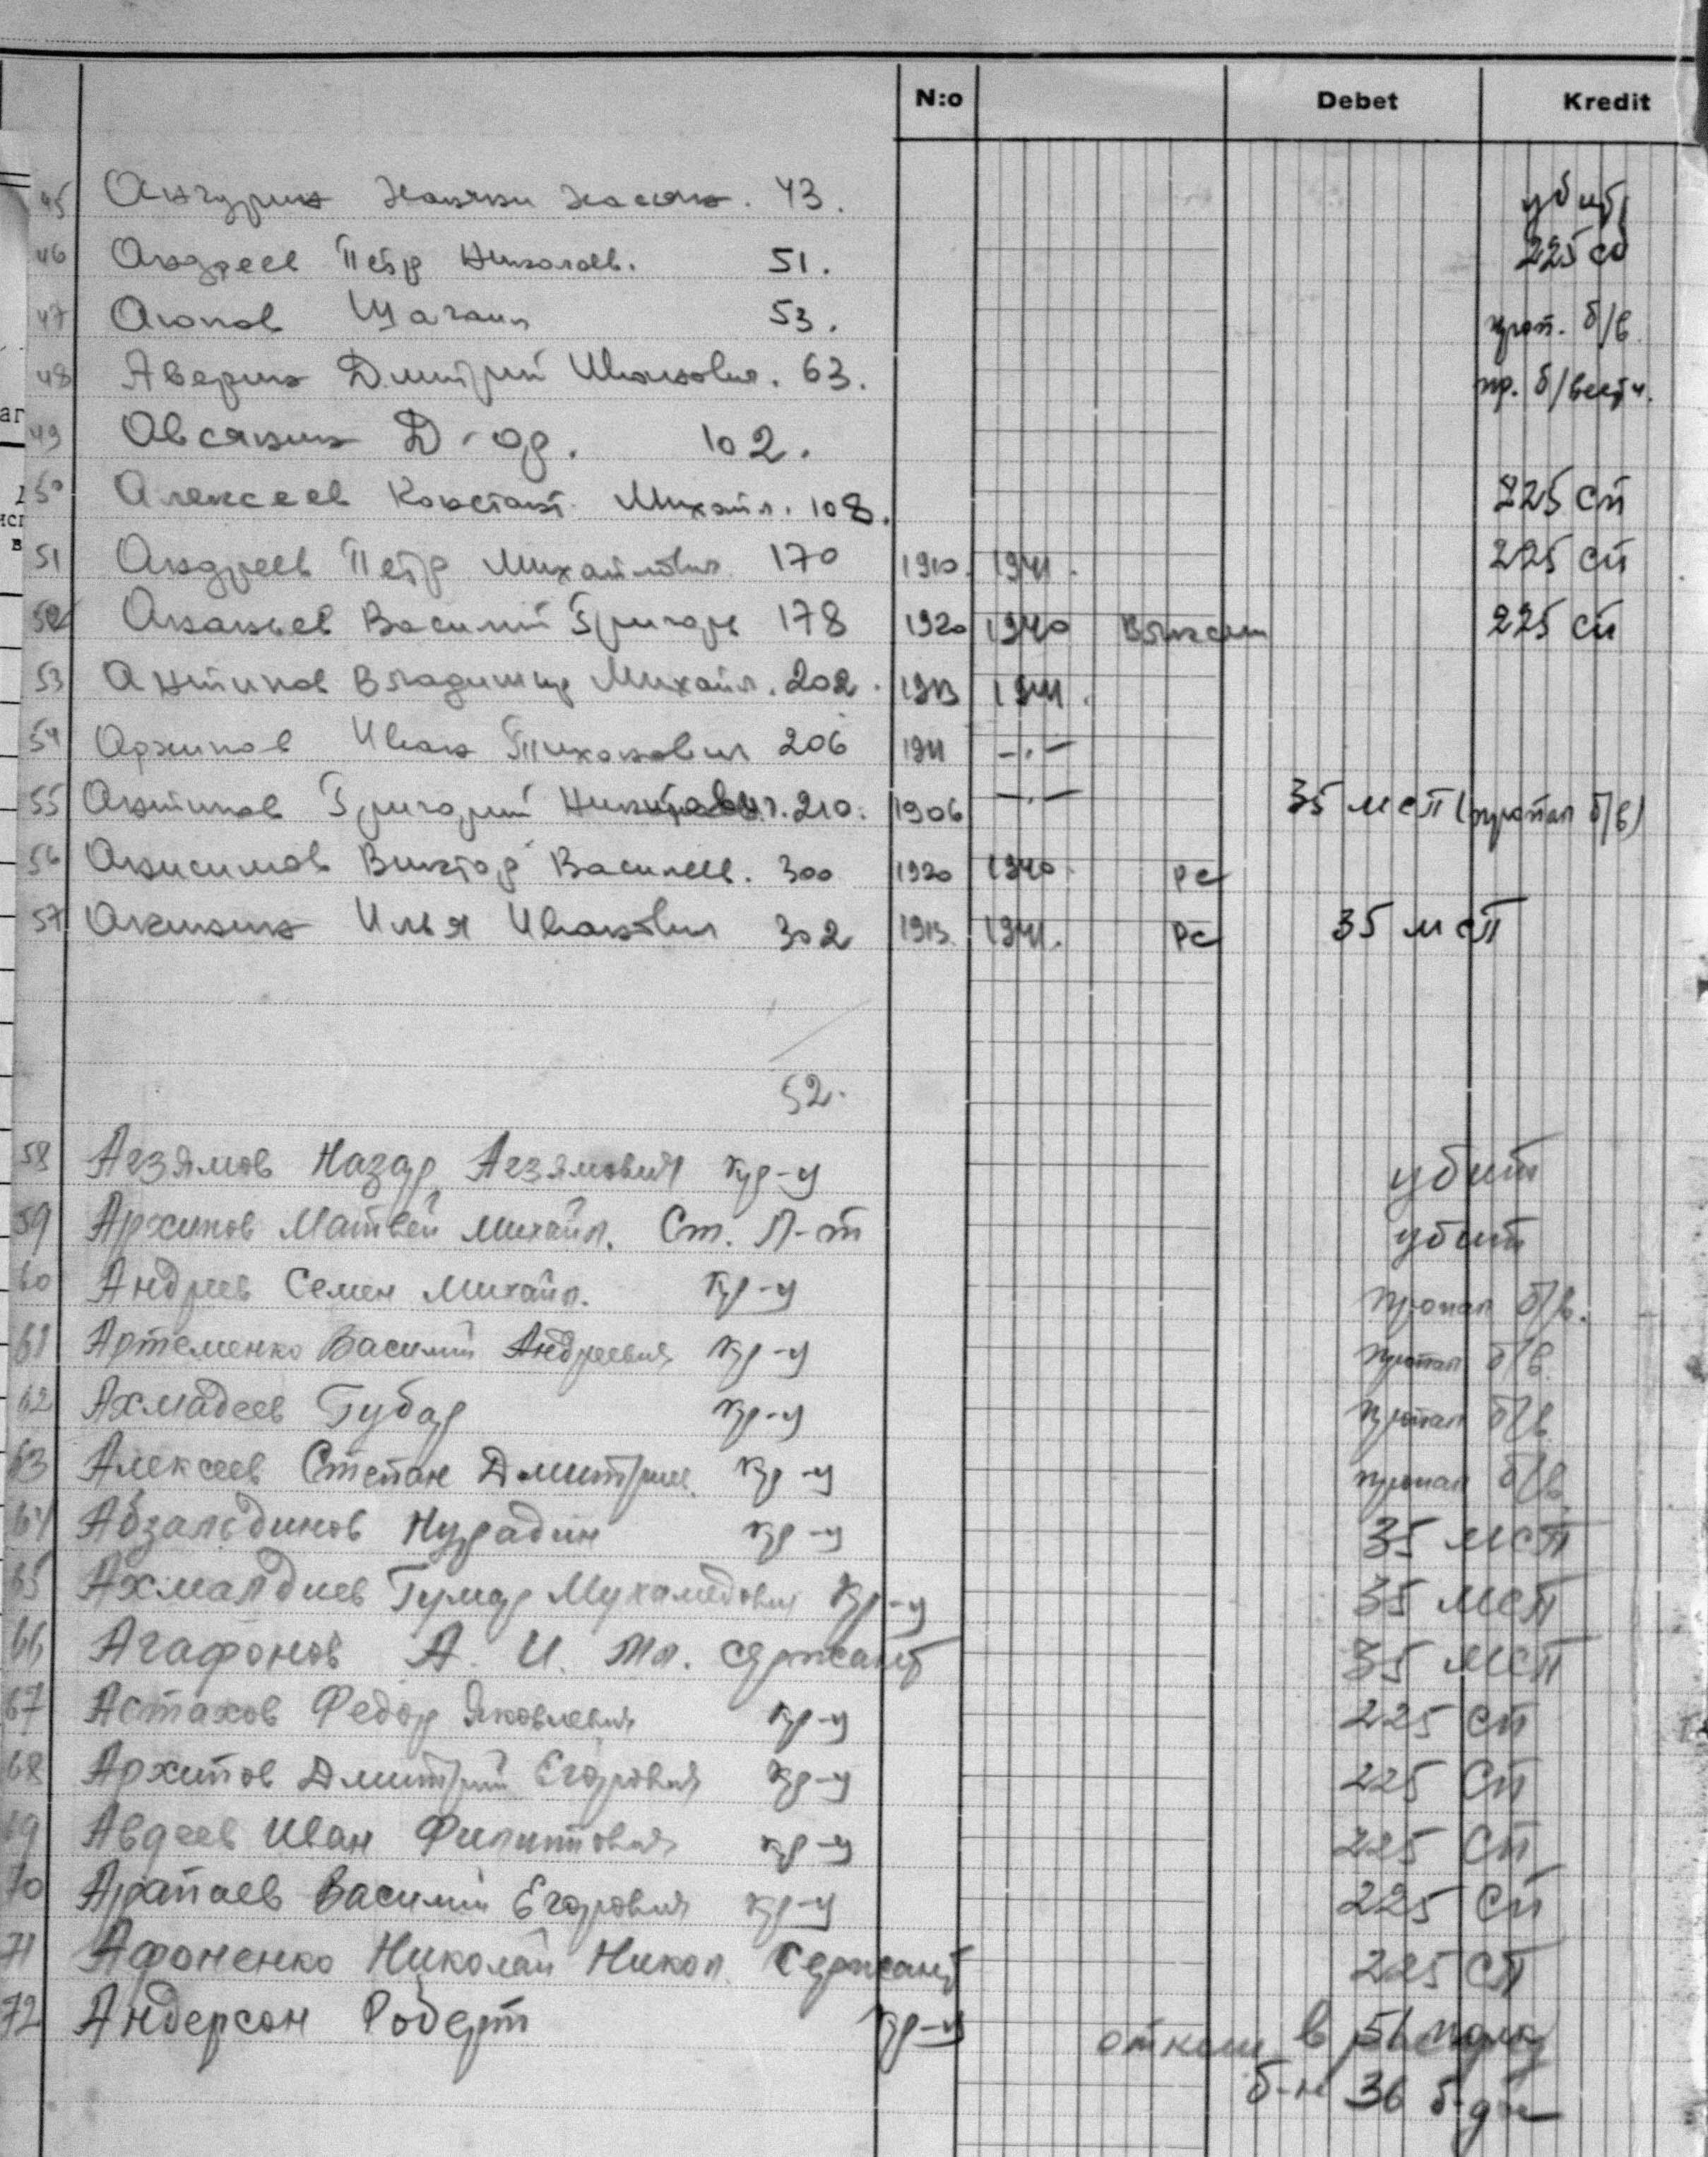 N:o Debet Kredit
45 43. убит
46 Андреев Петр Николаев. 51. 225 сп
47 Аюпов 53. проп. б/в
48 Аверин Дмитрий Иванович. 63. пр. б/вест.
49 Овсянкин 102.
50 Алексеев Констант. Михайл. 108. 225 сп
51 Андреев Петр Михайлович 170 1910. 1941. 225 сп
52 Ананьев Василий Григорь 178 1920 1940 225 сп
53 Антипов Владимир Михайл. 202. 1913 1941.
54 Архипов Иван Тихонович 206 1911 –·–
55 Антипов Григорий 210. 1906 –·– 35 мсп (пропал б/в)
56 Анисимов Виктор Василев. 300 1920 1940. рс
57 Акинин Илья Иванович 302 1913. 1941. рс 35 мсп
52.
58 Агзямов Назар Агзямович кр-ц убит
59 Архипов Матвей Михайл. Ст. Л-т убит
60 Андреев Семен Михайл. кр-ц пропал б/в.
61 Артеменко Василий Андреевич кр-ц пропал б/в.
62 Ахмадеев Губар кр-ц пропал б/в
63 Алексеев Степан Дмитрие. кр-ц пропал б/в.
64 Абзальдинов Нурадин кр-ц 35 мсп
65 Ахмалдиев Гумар Мухамедович кр-ц 35 мсп
66 Агафонов А. И. мл. сержант 35 мсп
67 Астахов Федор Яковлевич кр-ц 225 сп
68 Архипов Дмитрий Егорович кр-ц 225 сп
69 Авдеев Иван Филиппович кр-ц 225 сп
70 Арапаев Василий Егорович кр-ц 225 сп
71 Афоненко Николай Никол. Сержант 225 сп
72 Андерсон Роберт кр-ц в
б-н 36